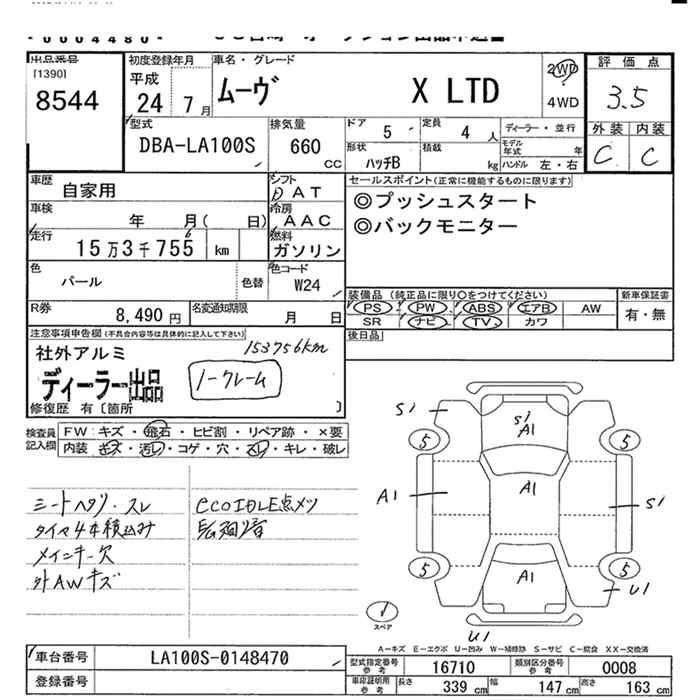 出品番号
[1390]
8544
初度登録年月
平成
24 7月
車名・グレード
ムーヴ X LTD
2WD
4WD
評価点
3.5
外装 内装
C C
型式
DBA-LA100S
排気量
660
CC
ドア 5
定員 4 人
形状
ハッチB
積載
kg
ディーラー・並行
モデル年式 年
ハンドル 左・右
車歴
自家用
シフト
AT
車検
年 月( 日)
冷房
AAC
走行
15万3千755 km
6
燃料
ガソリン
色
パール
色替
色コード
W24
R券
8,490 円
名変通知期限
月 日
セールスポイント(正常に機能するものに限ります)
◎プッシュスタート
◎バックモニター
装備品 (純正品に限り○をつけてください)
PS PW ABS エアB AW
SR ナビ TV カワ
新車保証書
有・無
後日品
注意事項申告欄(不具合内容等は具体的に記入して下さい)
社外アルミ
153756km
ディーラー出品
ノークレーム
修復歴 有〔箇所 〕
検査員記入欄
FW:キズ・飛石・ヒビ割・リペア跡・×要
内装 キズ・汚レ・コゲ・穴・スレ・キレ・破レ
シートヘタリ・スレ
タイヤ4本積込み
メインキー欠
外AWキズ
eco IDLE点メツ
S1
S1
A1
5
5
A1
A1
S1
5
5
A1
U1
U1
スペア
A-キズ E-エクボ U-凹み W-補修跡 S-サビ C-腐食 XX-交換済
車台番号
LA100S-0148470
登録番号
型式指定番号
参考
16710
類別区分番号
参考
0008
車庫証明用
参考
長さ 339 cm 幅 147 cm 高さ 163 cm